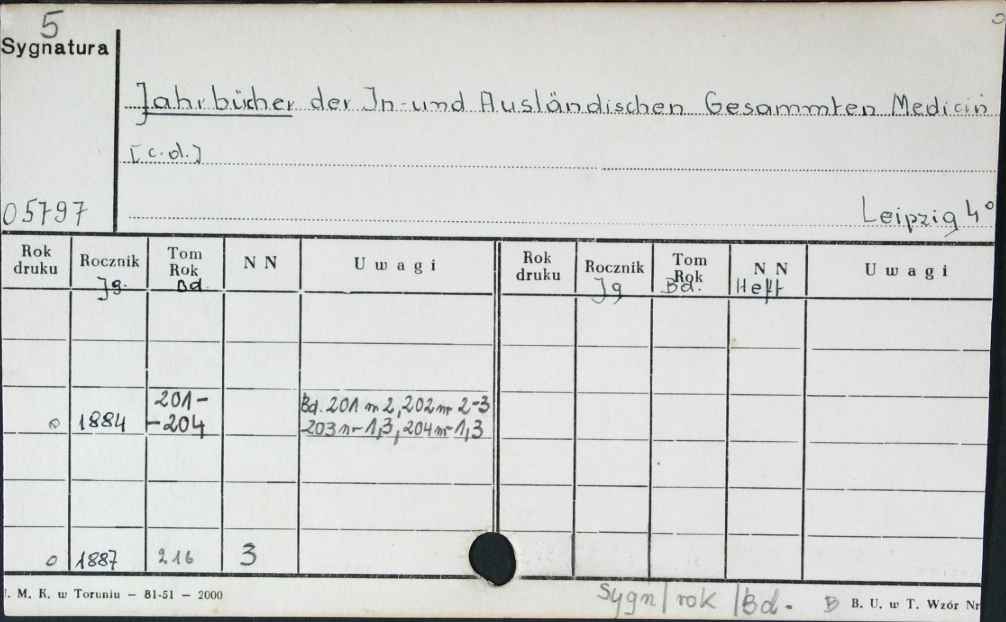 5
Sygnatura
Jahrbücher der In- und Ausländischen Gesammten Medicin
[c.d.]
05797
Leipzig 4°
Rok druku Rocznik Jg. Tom Rok Bd. N N Uwagi Rok druku Rocznik Jg Tom Rok Bd. N N Heft Uwagi
o 1884 201- -204 Bd. 201 nr 2, 202 nr 2-3
203 nr 1,3, 204 nr 1,3
o 1887 216 3
. M. K. w Toruniu — 81-51 — 2000
Sygn/rok/Bd.
B. U. w T. Wzór Nr